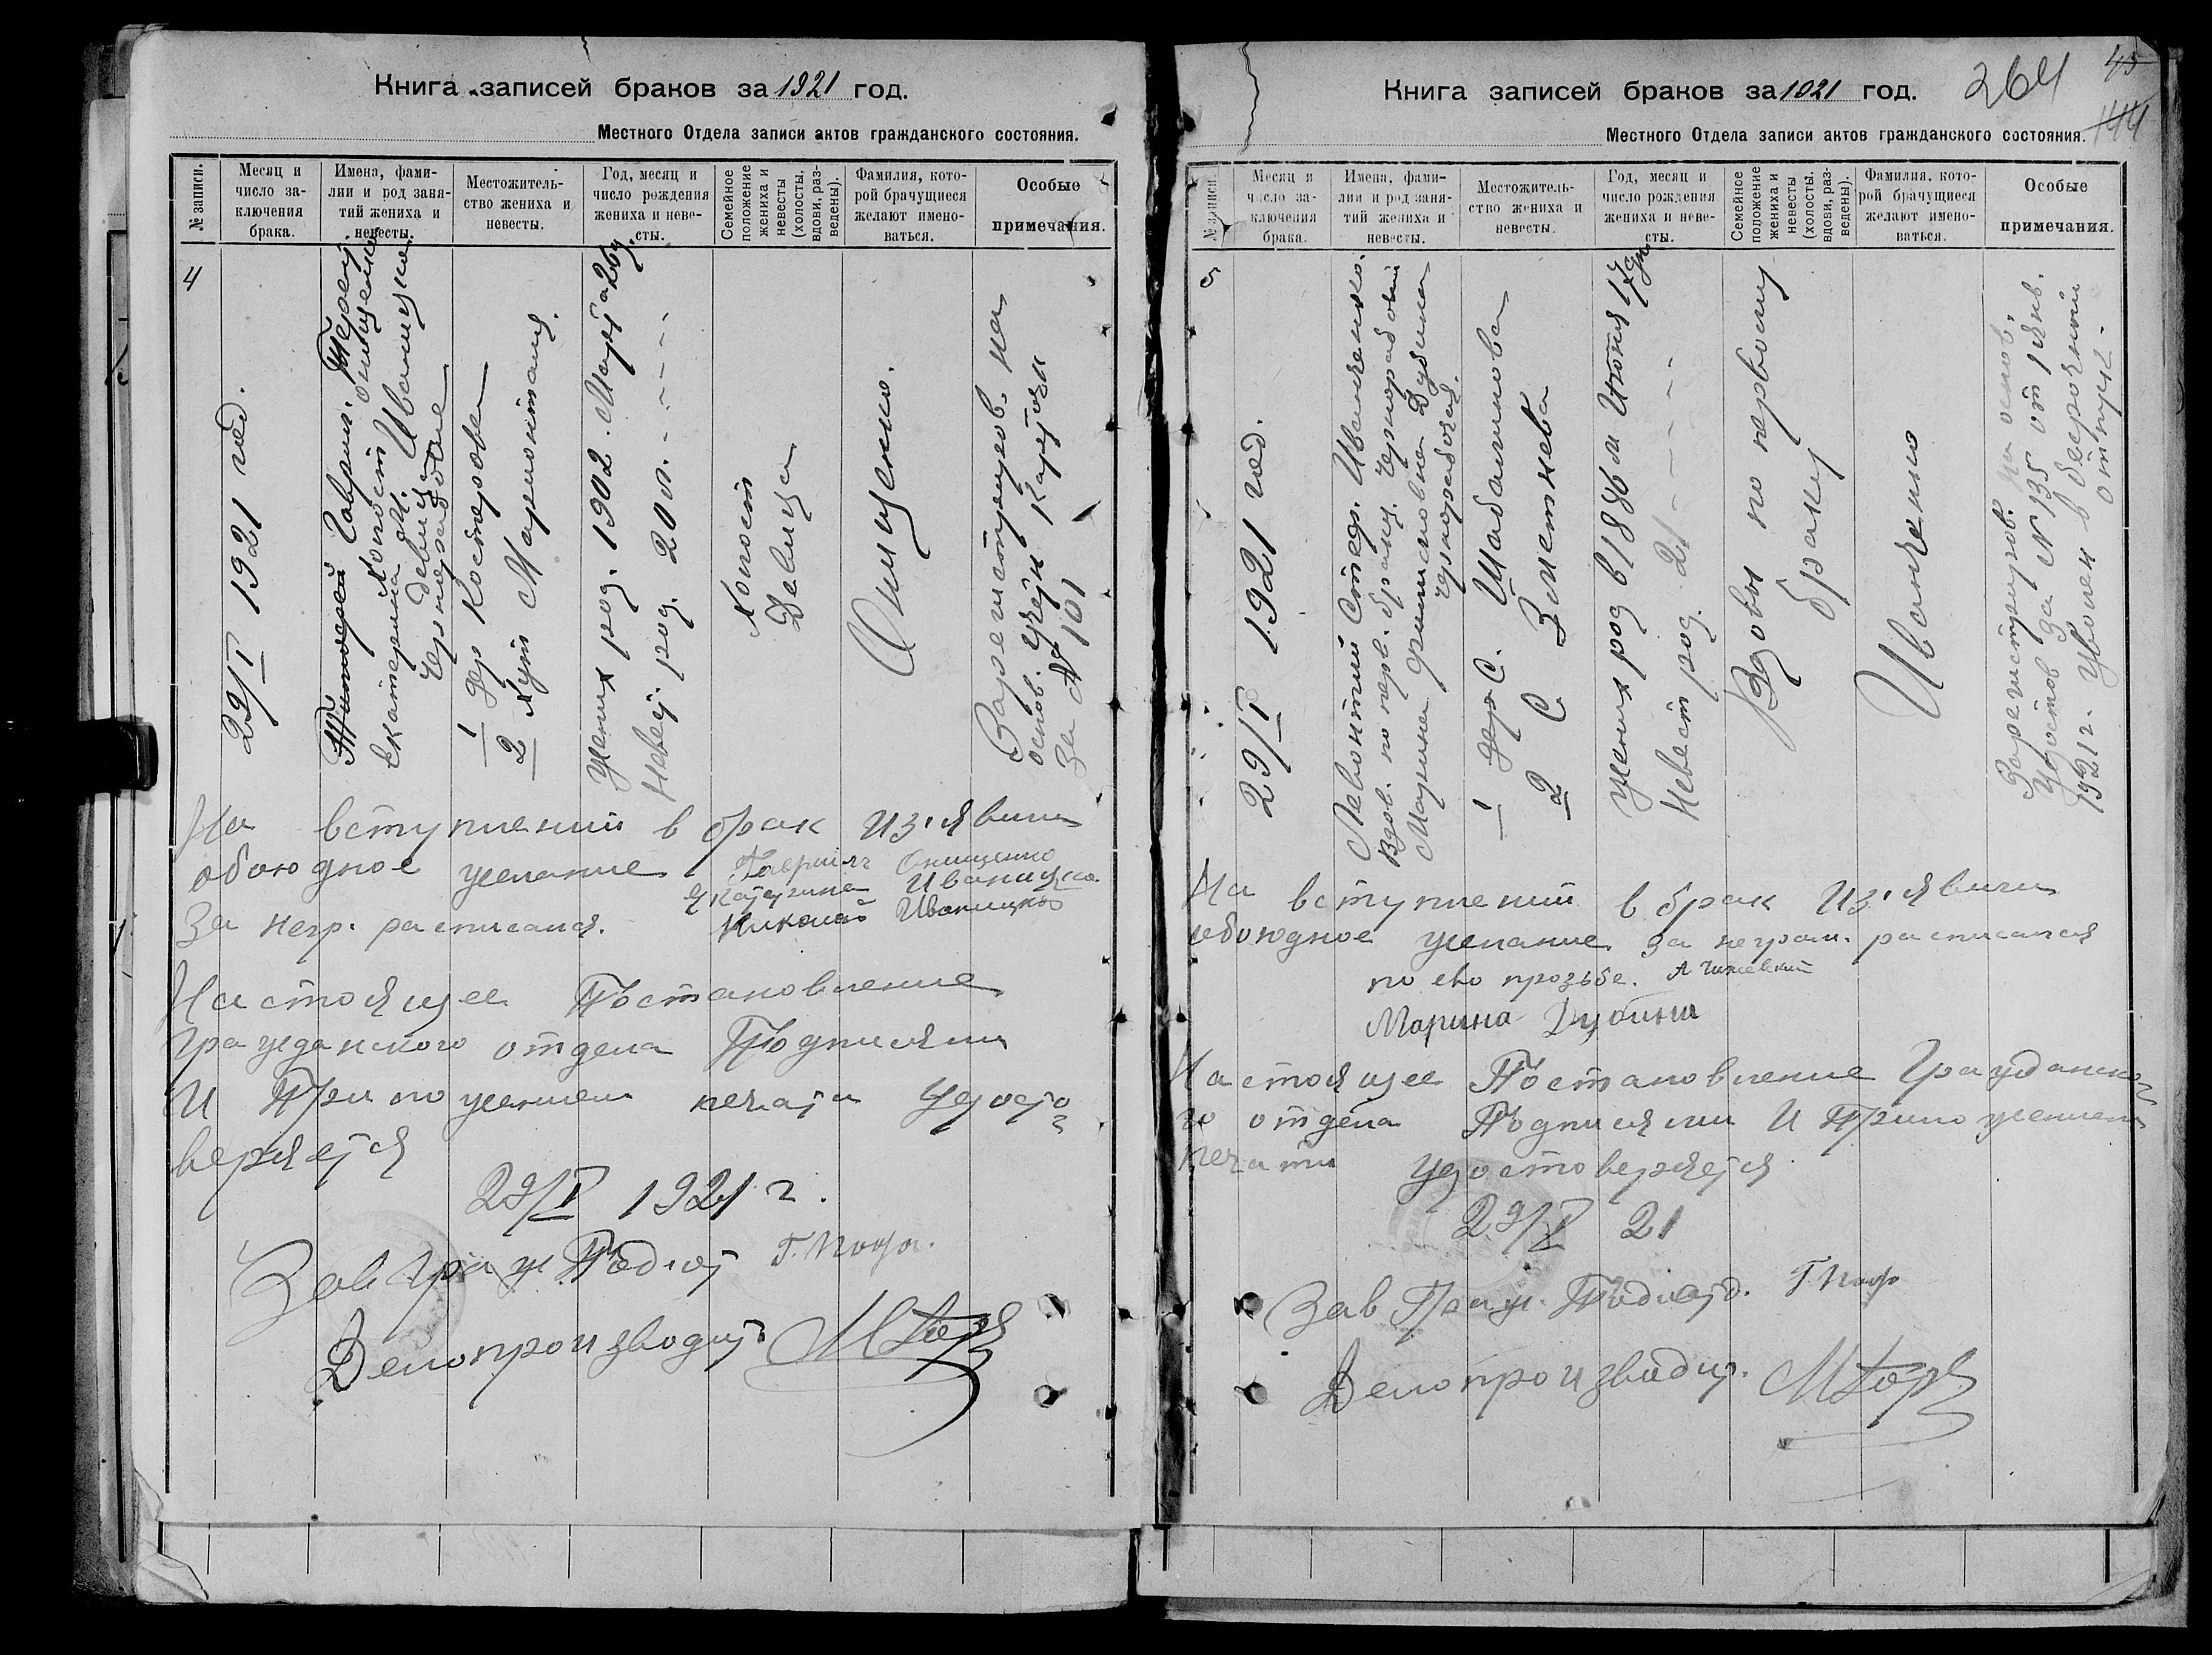 Книга записей браков за 1921 год.
Местного Отдела записи актов гражданского состояния.
№ записи.
Месяц и
число за-
ключения
брака.
Имена, фами-
лии и род заня-
тий жениха и
невесты.
Местожитель-
ство жениха и
невесты.
Год, месяц и
число рождения
жениха и неве-
сты.
Семейное
положение
жениха и
невесты
(холосты,
вдовы, раз-
ведены).
Фамилия, кото-
рой брачущиеся
желают имено-
ваться.
Особые
примечания.
4
29/I 1921 год.
Гаврил
Онищенко
холост
Екатерина Иваницка
девица
1 дер Костерова
2 хут
жених род. 1902. Марта 26
Невест. род. 20 л. - - - -
Холост
Девица
Онищенко.
Зарегистриров. на
основ. учетн карточки
за № 101
На вступлений в брак из'явили
обоюдное желание Гаврилъ Онищенко
Екатерина Иваницка
За негр. расписался. Николай Иваницко
Настоящее Постановление
Гражданского отдела Подписями
И Приложением печати Удосто
веряется
29/I 1921 г.
Зав Граж Подот
Делопроизводит
Книга записей браков за 1921 год.
264
45
144
Местного Отдела записи актов гражданского состояния.
№ записи.
Месяц и
число за-
ключения
брака.
Имена, фами-
лии и род заня-
тий жениха и
невесты.
Местожитель-
ство жениха и
невесты.
Год, месяц и
число рождения
жениха и неве-
сты.
Семейное
положение
жениха и
невесты
(холосты,
вдовы, раз-
ведены).
Фамилия, кото-
рой брачущиеся
желают имено-
ваться.
Особые
примечания.
5
29/I 1921 год.
Левонтий Стеф. Иванченко.
Вдов. по перв. браку. Чернорабочий
Марина Филиповна Дубина
Чернорабочая.
1 дер С. Шабалинова
2 С. Зметнева
жених род в 1886 м Июня 17 дн
Невест род. 21 - - - -
Вдовы по первому
браку
Иванченко
Зарегистриров. на основ.
Удостов за № 135 от 1 янв.
1921 г. Уволен в бессрочный
отпуск.
На вступлений в брак Из'явили
обоюдное желание За неграм. расписался
по ево прозьбе.
Марина Дубина
Настоящее Постановление Гражданско
го отдела Подписями И Приложением
печати удостоверяется
29/I 21
Зав Граж. Подотд.
Делопроизводит.